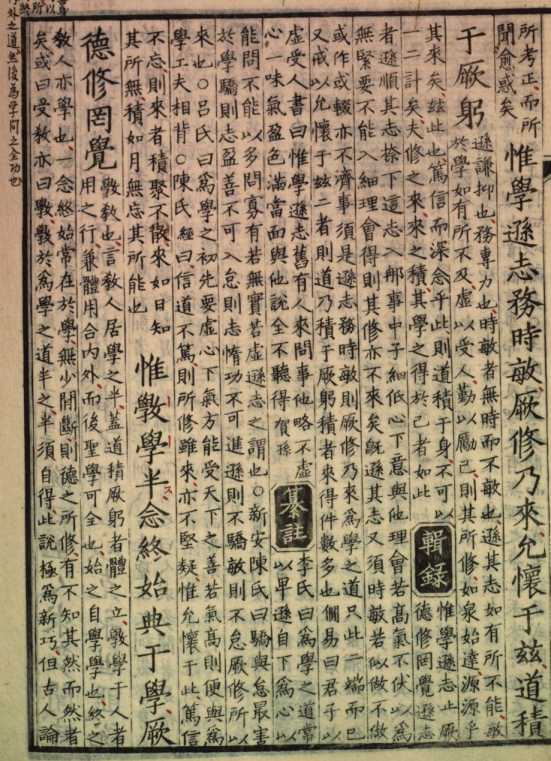 所考正而所
聞愈惑矣
惟學遜志務時敏厥修乃來允懷于兹道積
于厥躬
遜謙抑也務專力也時敏者無時而不敏也遜其志如有所不能敏
於學如有所不及虛以受人勤以勵己則其所修如泉始達源源乎
其來矣兹此也篤信而深念乎此則道積于身不可以
一二計矣夫修之來來之積其學之得於己者如此
輯録
惟學遜志止厥
德修罔覺遜志
者遜順其志捺下這志入那事中子細低心下意與他理會若高氣不伏以為
無緊要不能入細理會得則其修亦不來矣旣遜其志又須時敏若似做不做
或作或輟亦不濟事須是遜志務時敏則厥修乃來為學之道只此二端而已
又戒以允懷于兹二者則道乃積于厥躬積者來得件數多也僩易曰君子以
虛受人書曰惟學遜志舊有人來問事他略不虛
心一味氣盈色滿當面與他說全不聽得賀孫
纂註
李氏曰為學之道常
以卑遜自下為心以
能問不能以多問寡有若無實若虛遜志之謂也○新安陳氏曰驕與怠最害
於學驕則志盈善不可入怠則志惰功不可進遜則不驕敏則不怠厥修所以
來也○呂氏曰為學之初先要虛心下氣方能受天下之善若氣高則便與為
學工夫相背○陳氏經曰信道不篤則所修雖來亦不堅疑惟允懷于此篤信
不忘則來者積聚不散來如日知
其所無積如月無忘其所能也
惟斆學半念終始典于學厥
德修罔覺
斆敎也言敎人居學之半蓋道積厥躬者體之立斆學于人者
用之行兼體用合內外而後聖學可全也始之自學學也終之
敎人亦學也一念終始常在於學無少間斷則德之所修有不知其然而然者
矣或曰受敎亦曰斆斆於為學之道半之半須自得此說極為新巧但古人論
外之道無後為學問之全功也